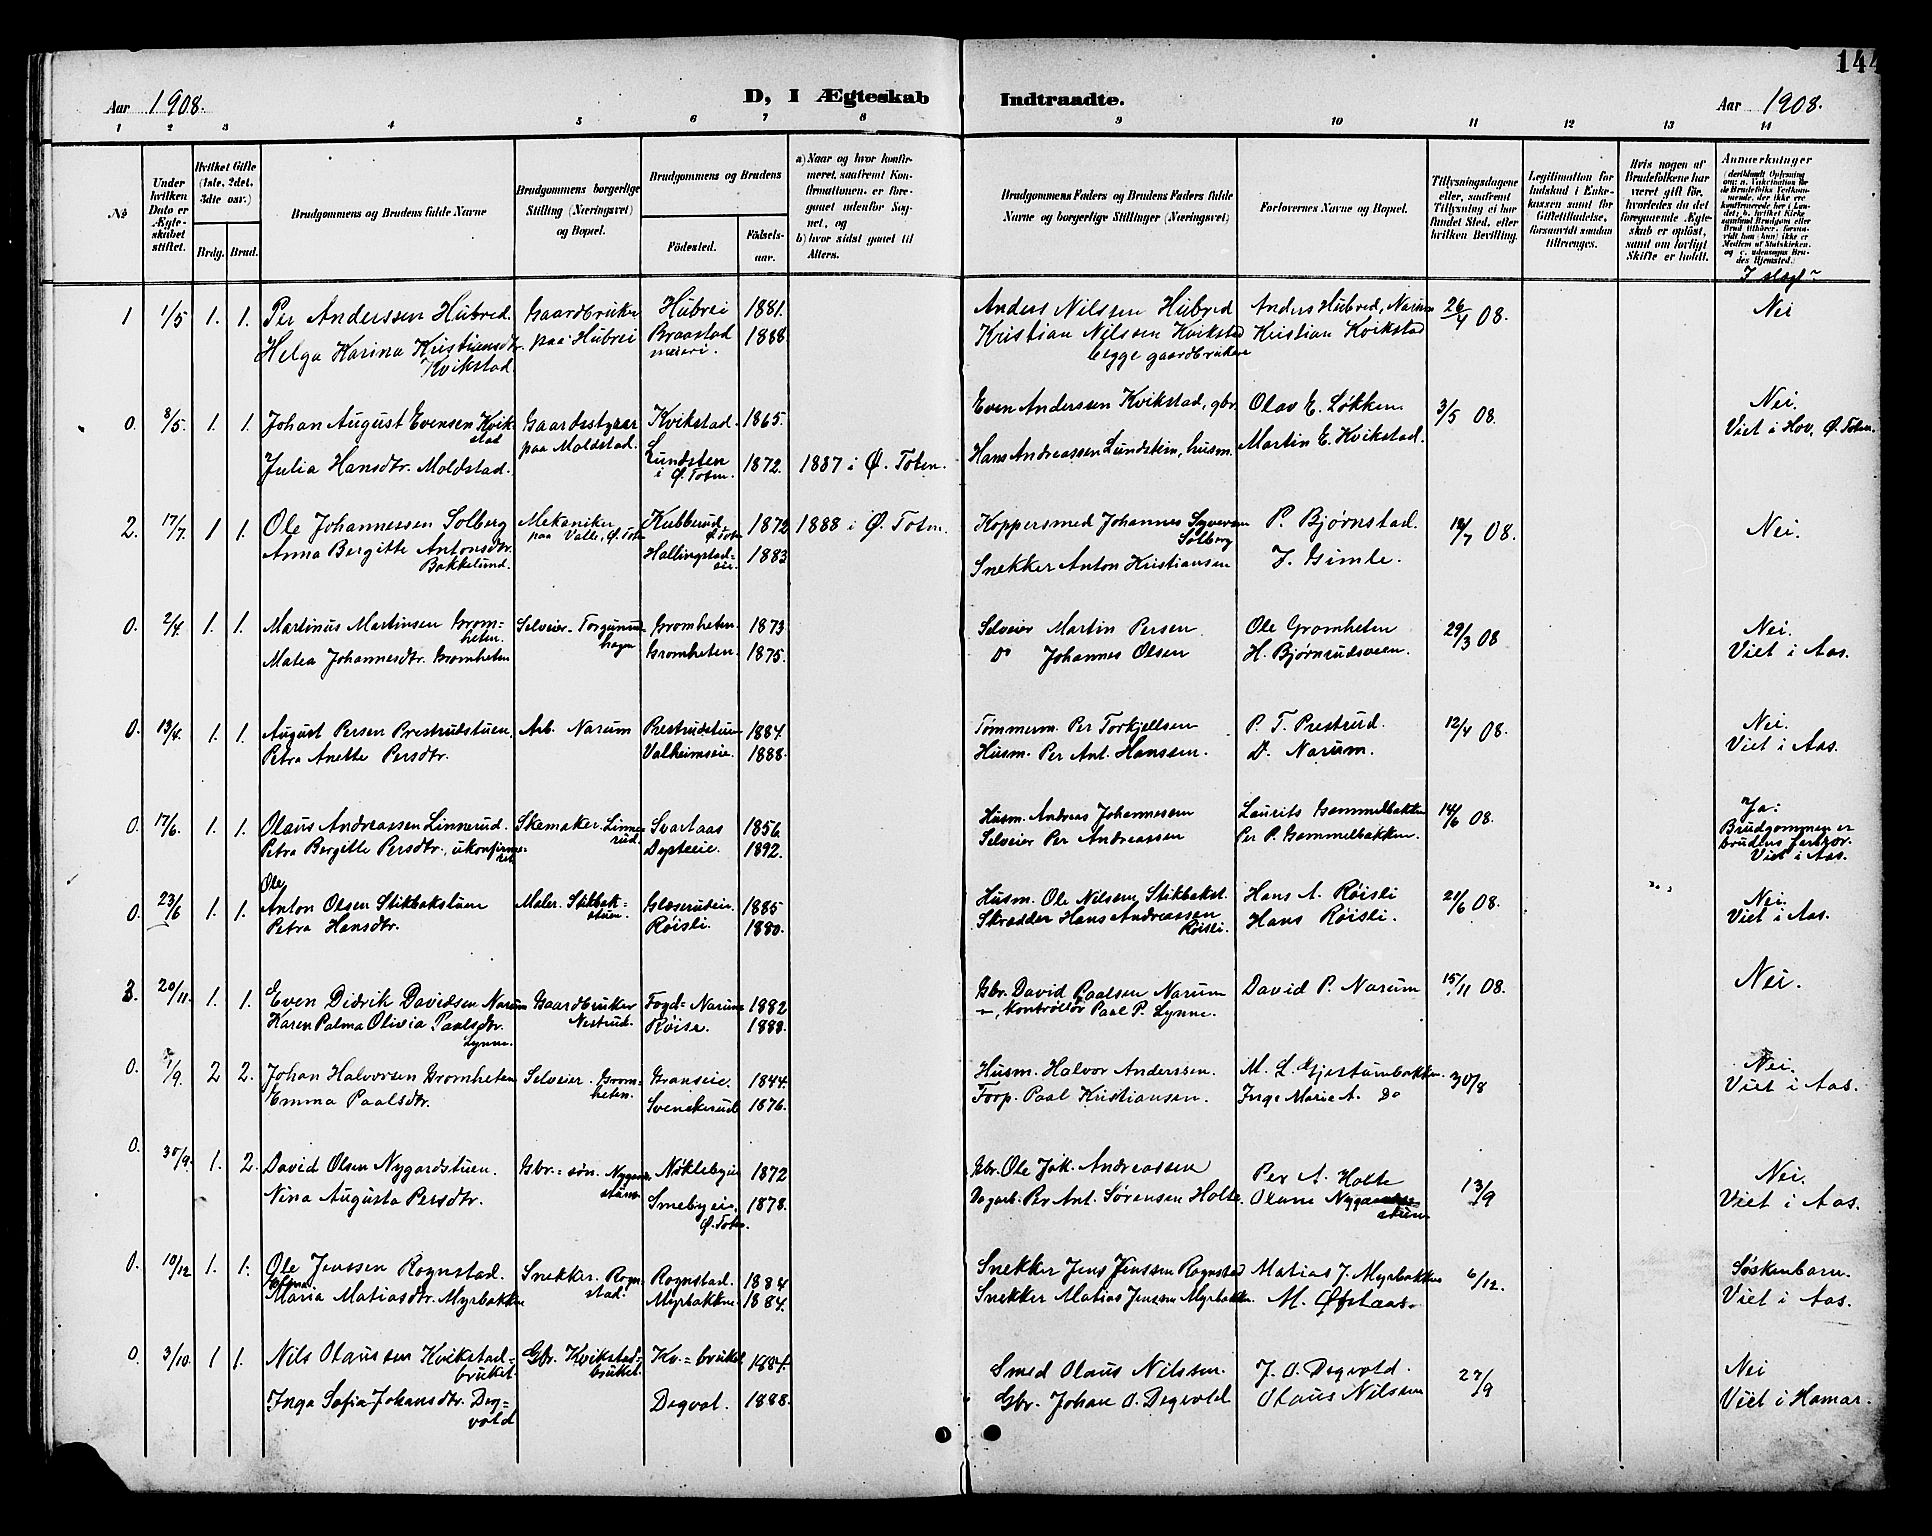 144
Aar 1908. D, I Ægteskab Indtraadte. Aar 1908.
1 2 3 4 5 6 7 8 9 10 11 12 13 14
No
Under hvilken Dato er Ægteskabet stiftet.
Hvilket Gifte (1ste, 2det, 3die osv.)
Brdg. Brud.
Brudgommens og Brudens fulde Navne
Brudgommens borgerlige Stilling (Næringsvei) og Bopæl.
Brudgommens og Brudens
Födested. Födselsaar.
a) Naar og hvor konfirmeret, saafremt Konfirmationen er foregaaet udenfor Sognet, og
b) hvor sidst gaaet til Alters.
Brudgommens Faders og Brudens Faders fulde Navne og borgerlige Stillinger (Næringsvei)
Forlovernes Navne og Bopæl.
Tillysningsdagene eller, saafremt Tillysning ei har fundet Sted, efter hvilken Bevilling.
Legitimation for Indskud i Enkekassen samt for Giftetilladelse, forsaavidt saadan tiltrænges.
Hvis nogen af Brudefolkene har været gift för, hvorledes da det foregaaende Ægteskab er oplöst, samt om lovligt Skifte er holdt.
Anmærkninger
I slægt?
1 1/5 1. 1. Per Anderssen Hubred. Gaardbruker Hubrei 1881. Anders Nilssen Hubred Anders Hubred, Narum 26/4 08. Nei
Helga Karina Kristiansdtr. paa Hubrei Braastad 1888. Kristian Nilssen Kvikstad Kristian Kvikstad
Kvikstad. meieri. begge gaardbrukere
0. 8/5. 1. 1. Johan August Evensen Kvikstad Gaardsstyrer Kvikstad. 1865. Even Anderssen Kvikstad, gbr. Olav E. Løkken 3/5 08. Nei.
paa Moldstad. Viet i Hov, Ø. Toten.
Julia Hansdtr. Moldstad. Lundsten i Ø. Toten. 1872. 1887 i Ø. Toten. Hans Andreassen Lundstein, husm. Martin E. Kvikstad.
2. 17/7. 1 1. Ole Johannessen Solberg Mekaniker Kubberud Ø. Toten 1872 1888 i Ø. Toten. Koppersmed Johannes Syversen Solberg P. Bjørnstad. 12/7 08. Nei.
Anna Bergitte Antonsdtr. Bakkelund. paa Valle, Ø. Toten Hallingstadeie. 1883 Snekker Anton Kristiansen J. Gimle.
0. 2/4. 1. 1. Martinus Martinsen Gromheten. Selveier. Torgunrudhagen Gromheten. 1873 Selveier Martin Persen Ole Gromheten 29/3 08 Nei.
Matea Johannesdtr. Gromheten Gromheten. 1875. Do Johannes Olsen H. Bjørnrudsveen. Viet i Aas.
0. 13/4. 1. 1. August Persen Prestrudstuen. Arb. Narum Prestrudstuen 1884. Tømmerm. Per Torkjellsen P. T. Prestrud. 12/4 08. Nei.
Petra Anette Persdtr. Valheimseie. 1888. Husm. Per Ant. Hanssen. D. Narum. Viet i Aas.
0. 17/6. 1. 1. Olaus Andreassen Linnerud. Skomaker. Linnerud. Svartaas 1856. Husm. Andreas Johannesen Laurits Gammelbakken 14/6 08. Ja:
Petra Bergitte Persdtr., ukonfirmeret Dysteeie. 1892. Selveier Per Andreassen Per P. Gammelbakken. Brudgommen er brudens farbror. Viet i Aas.
0. 23/6 1. 1. Ole Anton Olsen Stikbakstuen Maler. Stikbakstuen. Glæserudeie. 1885 Husm. Ole Nilsen, Stikbakst. Hans A. Røisli 21/6 08. Nei.
Petra Hansdtr. Røisli. 1880. Skrædder Hans Andreassen Røisli. Hans Røisli. Viet i Aas.
3. 20/11. 1. 1. Even Didrik Davidsen Narum Gaardbruker Fogd-Narum 1882 Gbr. David Paalsen Narum David P. Narum 15/11 08. Nei.
Karen Palma Olivia Paalsdtr. Lynne. Nestrud. Røise. 1888. –, Kontrollør Paal P. Lynne.
0. 7/9. 2 2. Johan Halvorsen Gromheten Selveier. Gromheten. Granseie. 1844. Husm. Halvor Anderssen. M. L. Gjestumbakken. 30/8 Nei.
Emma Paalsdtr. Svenskerud 1876. Forp. Paal Kristiansen. Inge Marie A. Do Viet i Aas.
0. 30/9. 1. 2. David Olsen Nygardstuen. Gbr.-søn. Nygardstuen. Nøklebyeie 1872 Gbr. Ole Joh. Andreassen Per A. Holte 13/9 Nei.
Nina Augusta Persdtr. Smebyeie, Ø. Toten. 1878. Dagarb. Per Ant. Sørensen Holte. Olaus Nygardstuen Viet i Aas.
0. 10/12 1. 1. Ole Jenssen Rognstad. Snekker. Rognstad. Rognstad. 1884 Snekker Jens Jenssen Rognstad Matias J. Myrbakken 6/12. Søskenbarn.
Maria Matiasdtr. Myrbakken Myrbakken 1884. Snekker Matias Jenssen Myrbakken. M. Øfstaas. Viet i Aas.
0. 3/10. 1 1. Nils Olaussen Kvikstadbruket. Gbr. Kvikstadbruket. Kv.-bruket 1884. Smed Olaus Nilssen. J. O. Degvold. 27/9 Nei
Inga Sofia Johansdtr. Degvold Degvol. 1888. Gbr. Johan O. Degvold Olaus Nilsen Viet i Hamar.